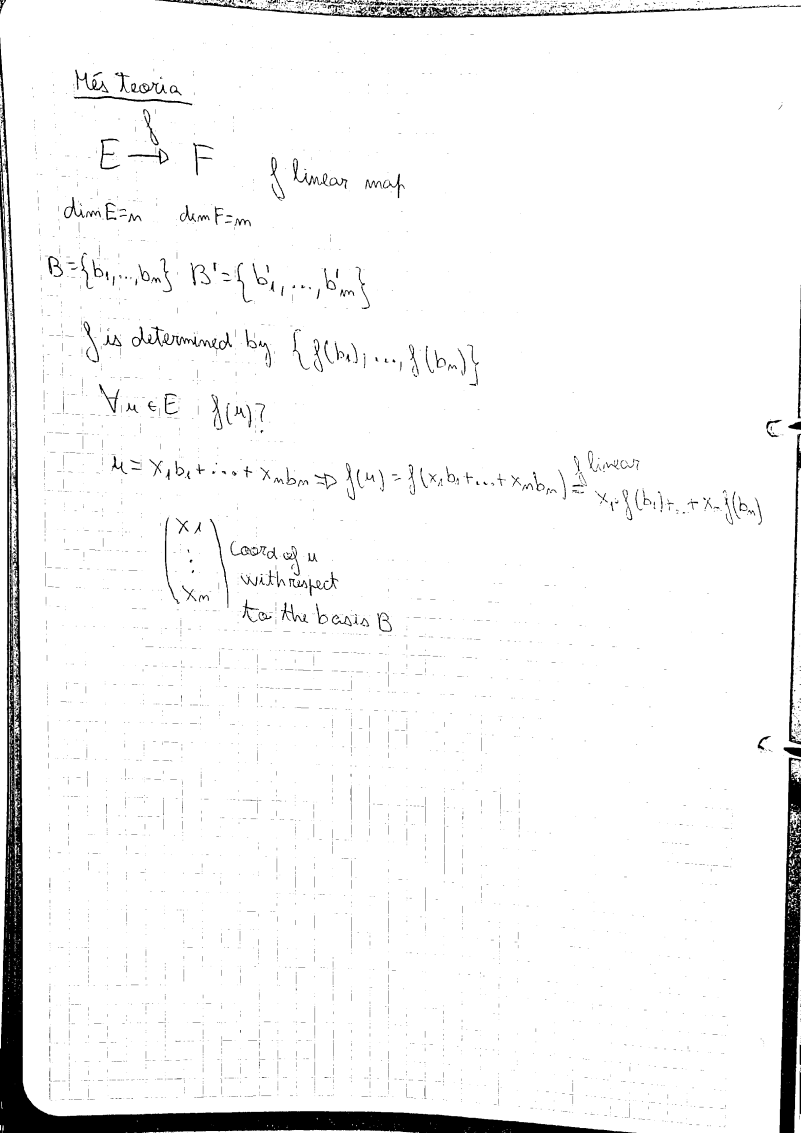 Més teoria
E —f→ F f linear map
dim E=n dim F=m
B={b1,...,bn} B'={b'1,...,b'm}
f is determined by {f(b1),...,f(bn)}
∀u∈E f(u)?
u = x1b1+...+xnbn ⇒ f(u) = f(x1b1+...+xnbn) = x1·f(b1)+...+xn f(bn)
f linear
(x1 ⋮ xn) coord of u
with respect
to the basis B